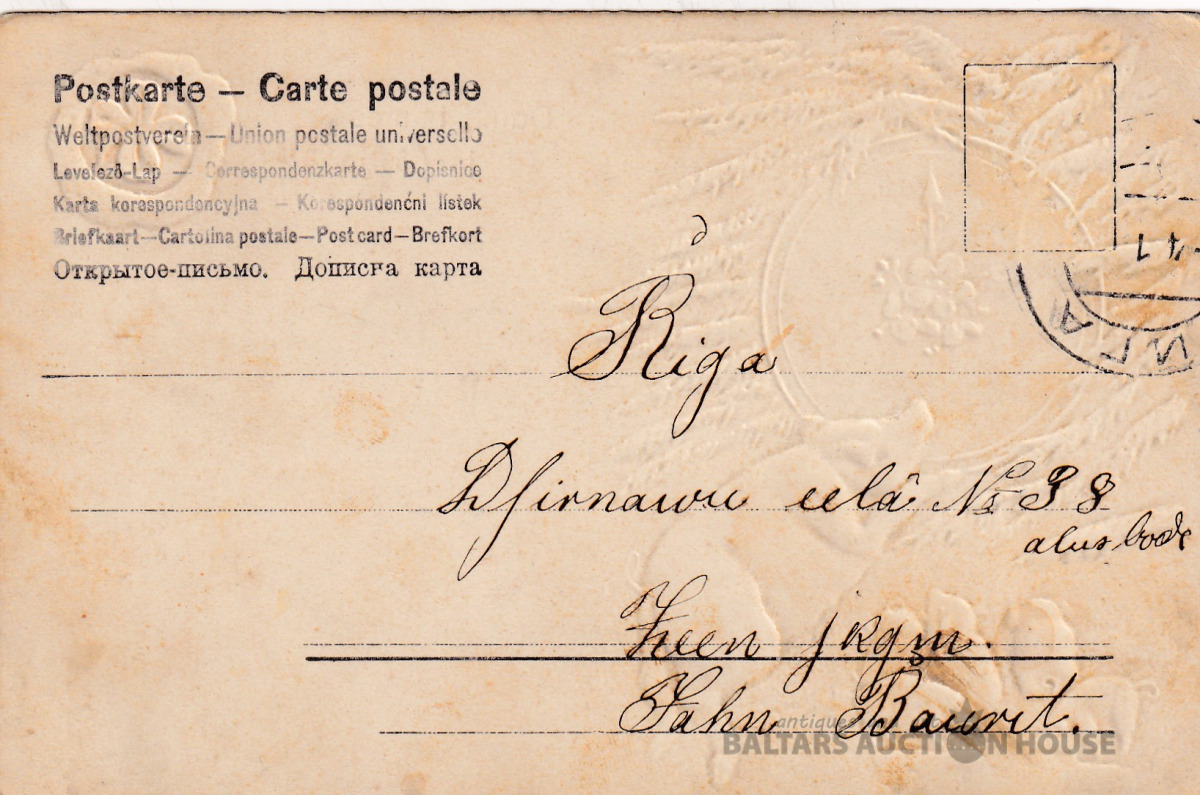 Postkarte — Carte postale
Weltpostverein — Union postale universelle
Levelező-Lap — Correspondenzkarte — Dopisnice
Karta korespondencyjna — Korespondenční lístek
Briefkaart — Cartolina postale — Post card — Brefkort
Открытое-письмо. Дописна карта
Riga
Dsirnawu eelâ № 38
alus bode
Zeen jkgm.
Jahn
antiques
BALTARS AUCTION HOUSE